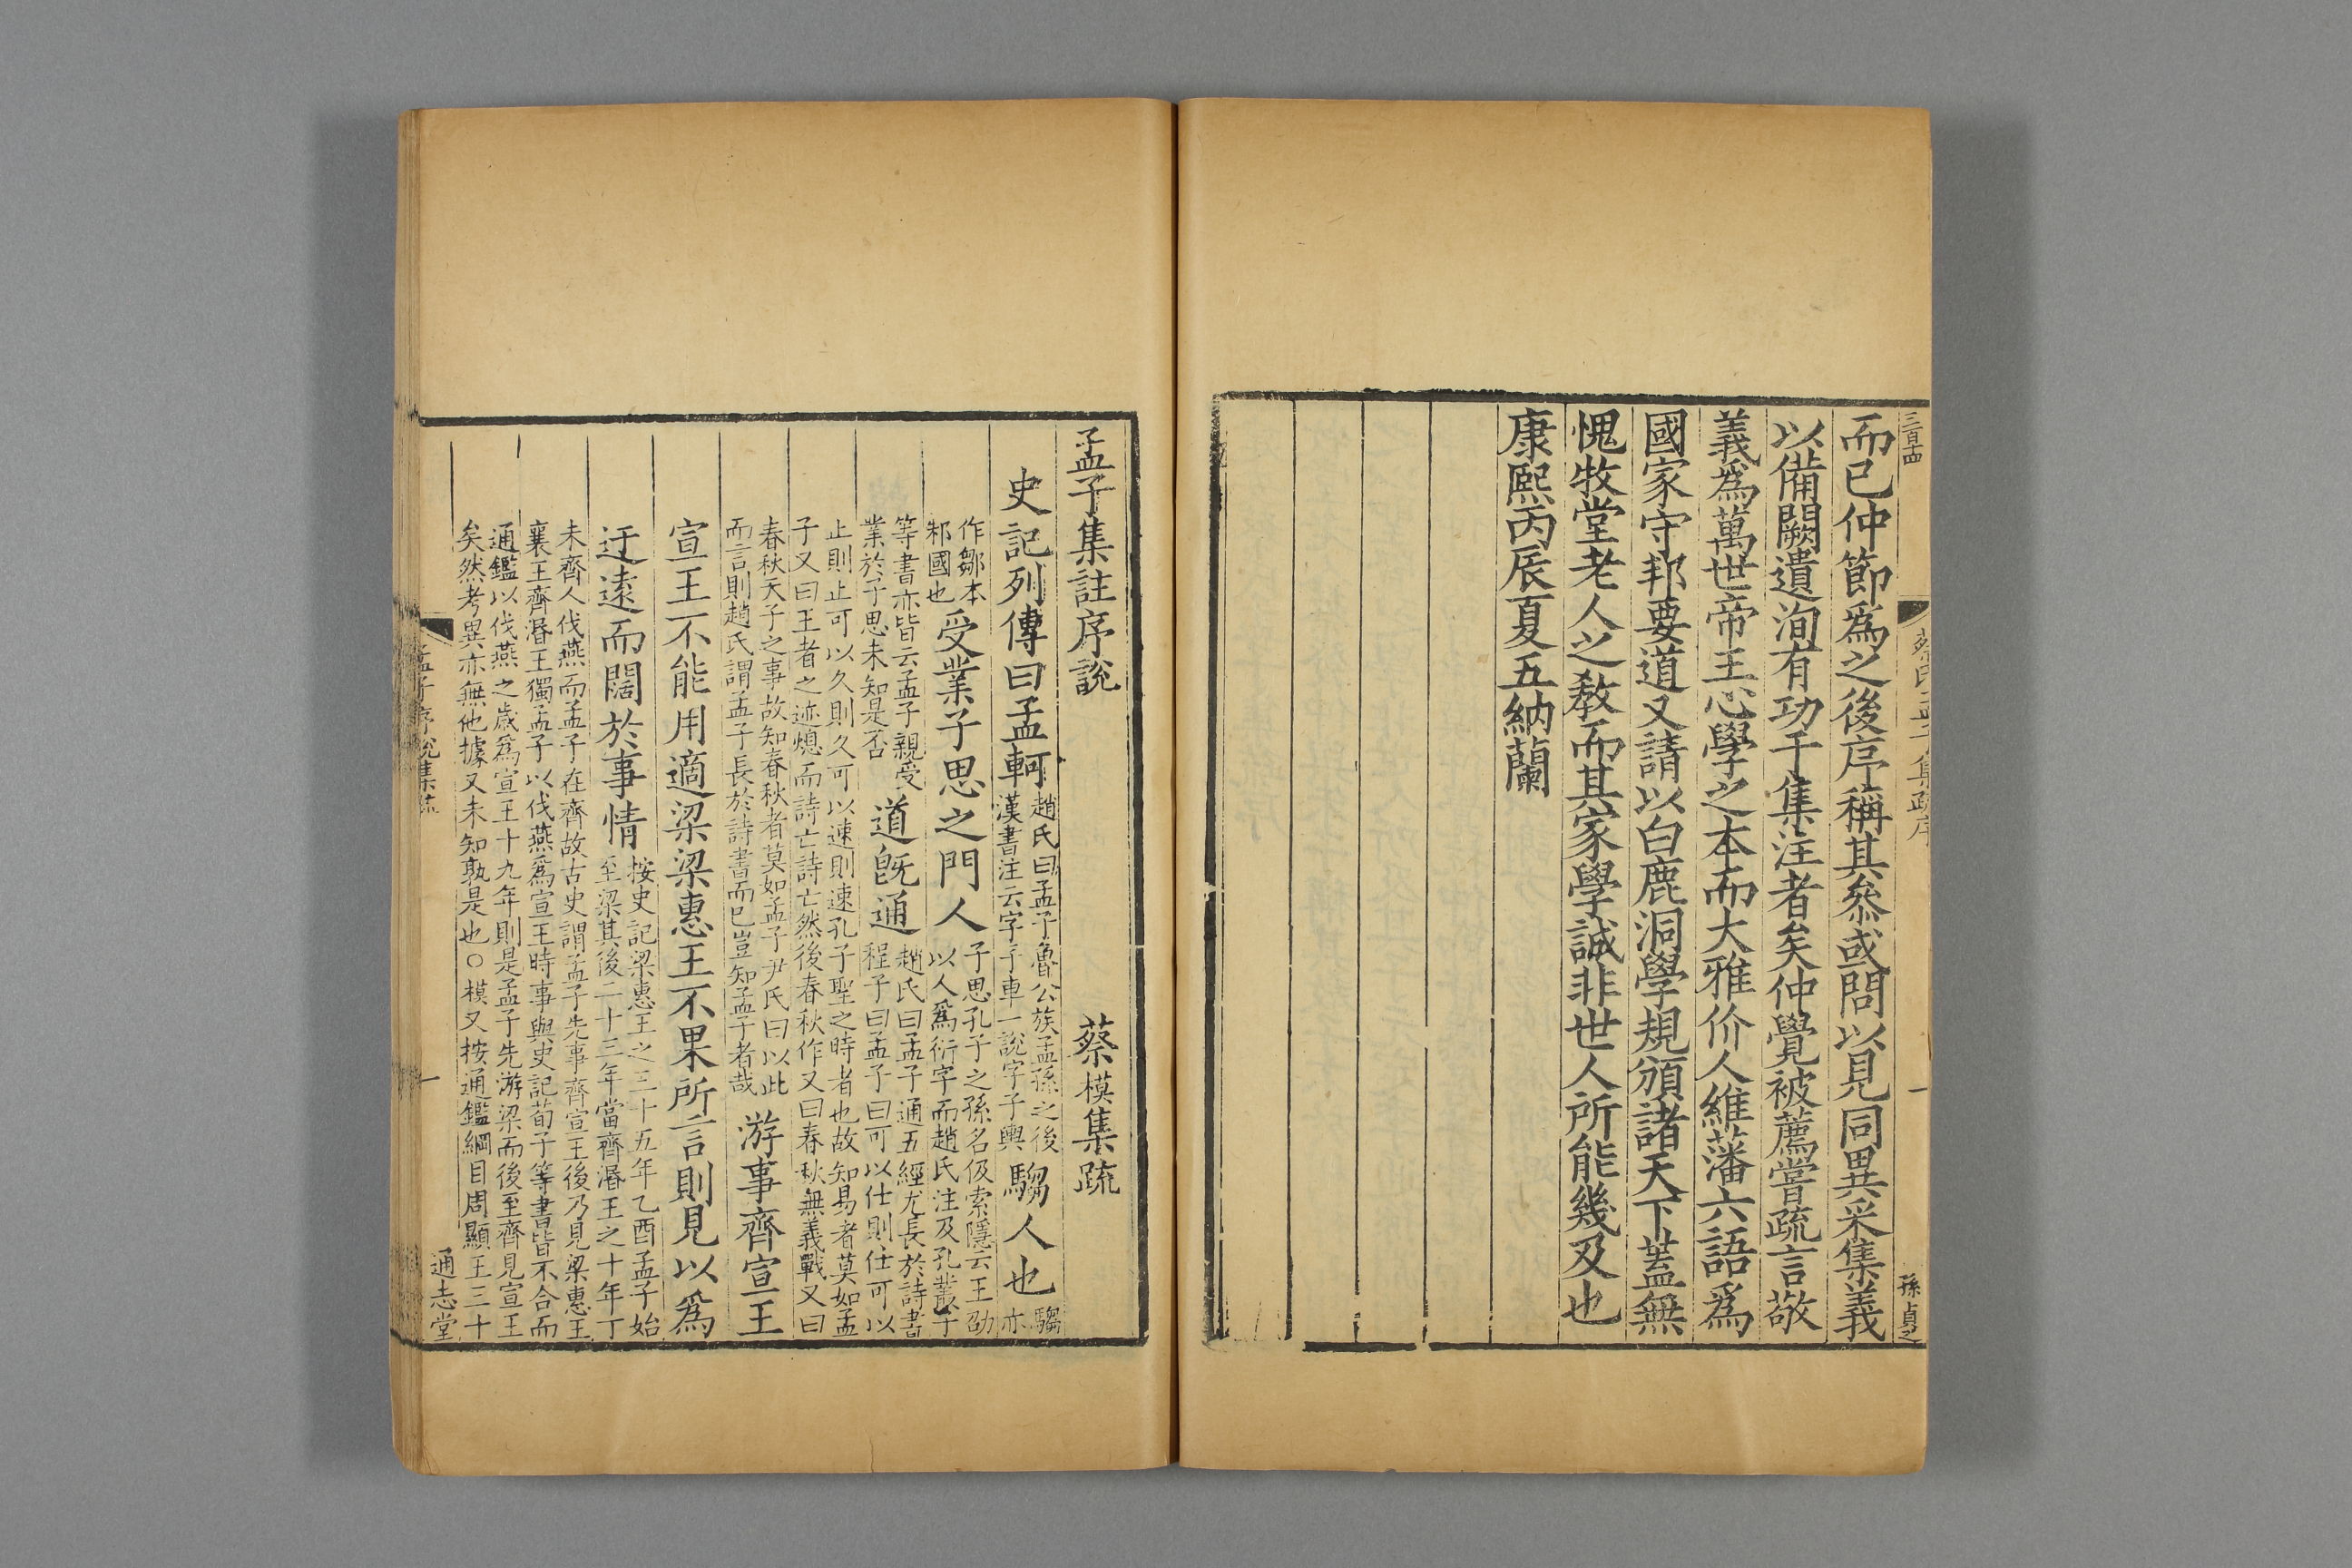 三百十四
蔡氏孟子集疏序
一
孫貞之
而已仲節爲之後序稱其叅或問以見同異采集義
以備闕遺洵有功于集注者矣仲覺被薦嘗疏言敬
義爲萬世帝王心學之本而大雅价人維藩六語爲
國家守邦要道又請以白鹿洞學規頒諸天下蓋無
愧牧堂老人之敎而其家學誠非世人所能幾及也
康熙丙辰夏五納蘭
孟子集註序說
蔡模集疏
史記列傳曰孟軻
趙氏曰孟子魯公族孟孫之後
漢書注云字子車一說字子輿
騶人也
騶亦
作鄒本
邾國也
受業子思之門人
子思孔子之孫名伋索隱云王劭
以人爲衍字而趙氏注及孔叢子
等書亦皆云孟子親受
業於子思未知是否
道旣通
趙氏曰孟子通五經尤長於詩書
程子曰孟子曰可以仕則仕可以
止則止可以久則久可以速則速孔子聖之時者也故知易者莫如孟
子又曰王者之迹熄而詩亡詩亡然後春秋作又曰春秋無義戰又曰
春秋天子之事故知春秋者莫如孟子尹氏曰以此
而言則趙氏謂孟子長於詩書而已豈知孟子者哉
游事齊宣王
宣王不能用適梁梁惠王不果所言則見以爲
迂遠而闊於事情
按史記梁惠王之三十五年乙酉孟子始
至梁其後二十三年當齊湣王之十年丁
未齊人伐燕而孟子在齊故古史謂孟子先事齊宣王後乃見梁惠王
襄王齊湣王獨孟子以伐燕爲宣王時事與史記荀子等書皆不合而
通鑑以伐燕之歲爲宣王十九年則是孟子先游梁而後至齊見宣王
矣然考異亦無他據又未知孰是也○模又按通鑑綱目周顯王三十
孟子序說集疏
一
通志堂